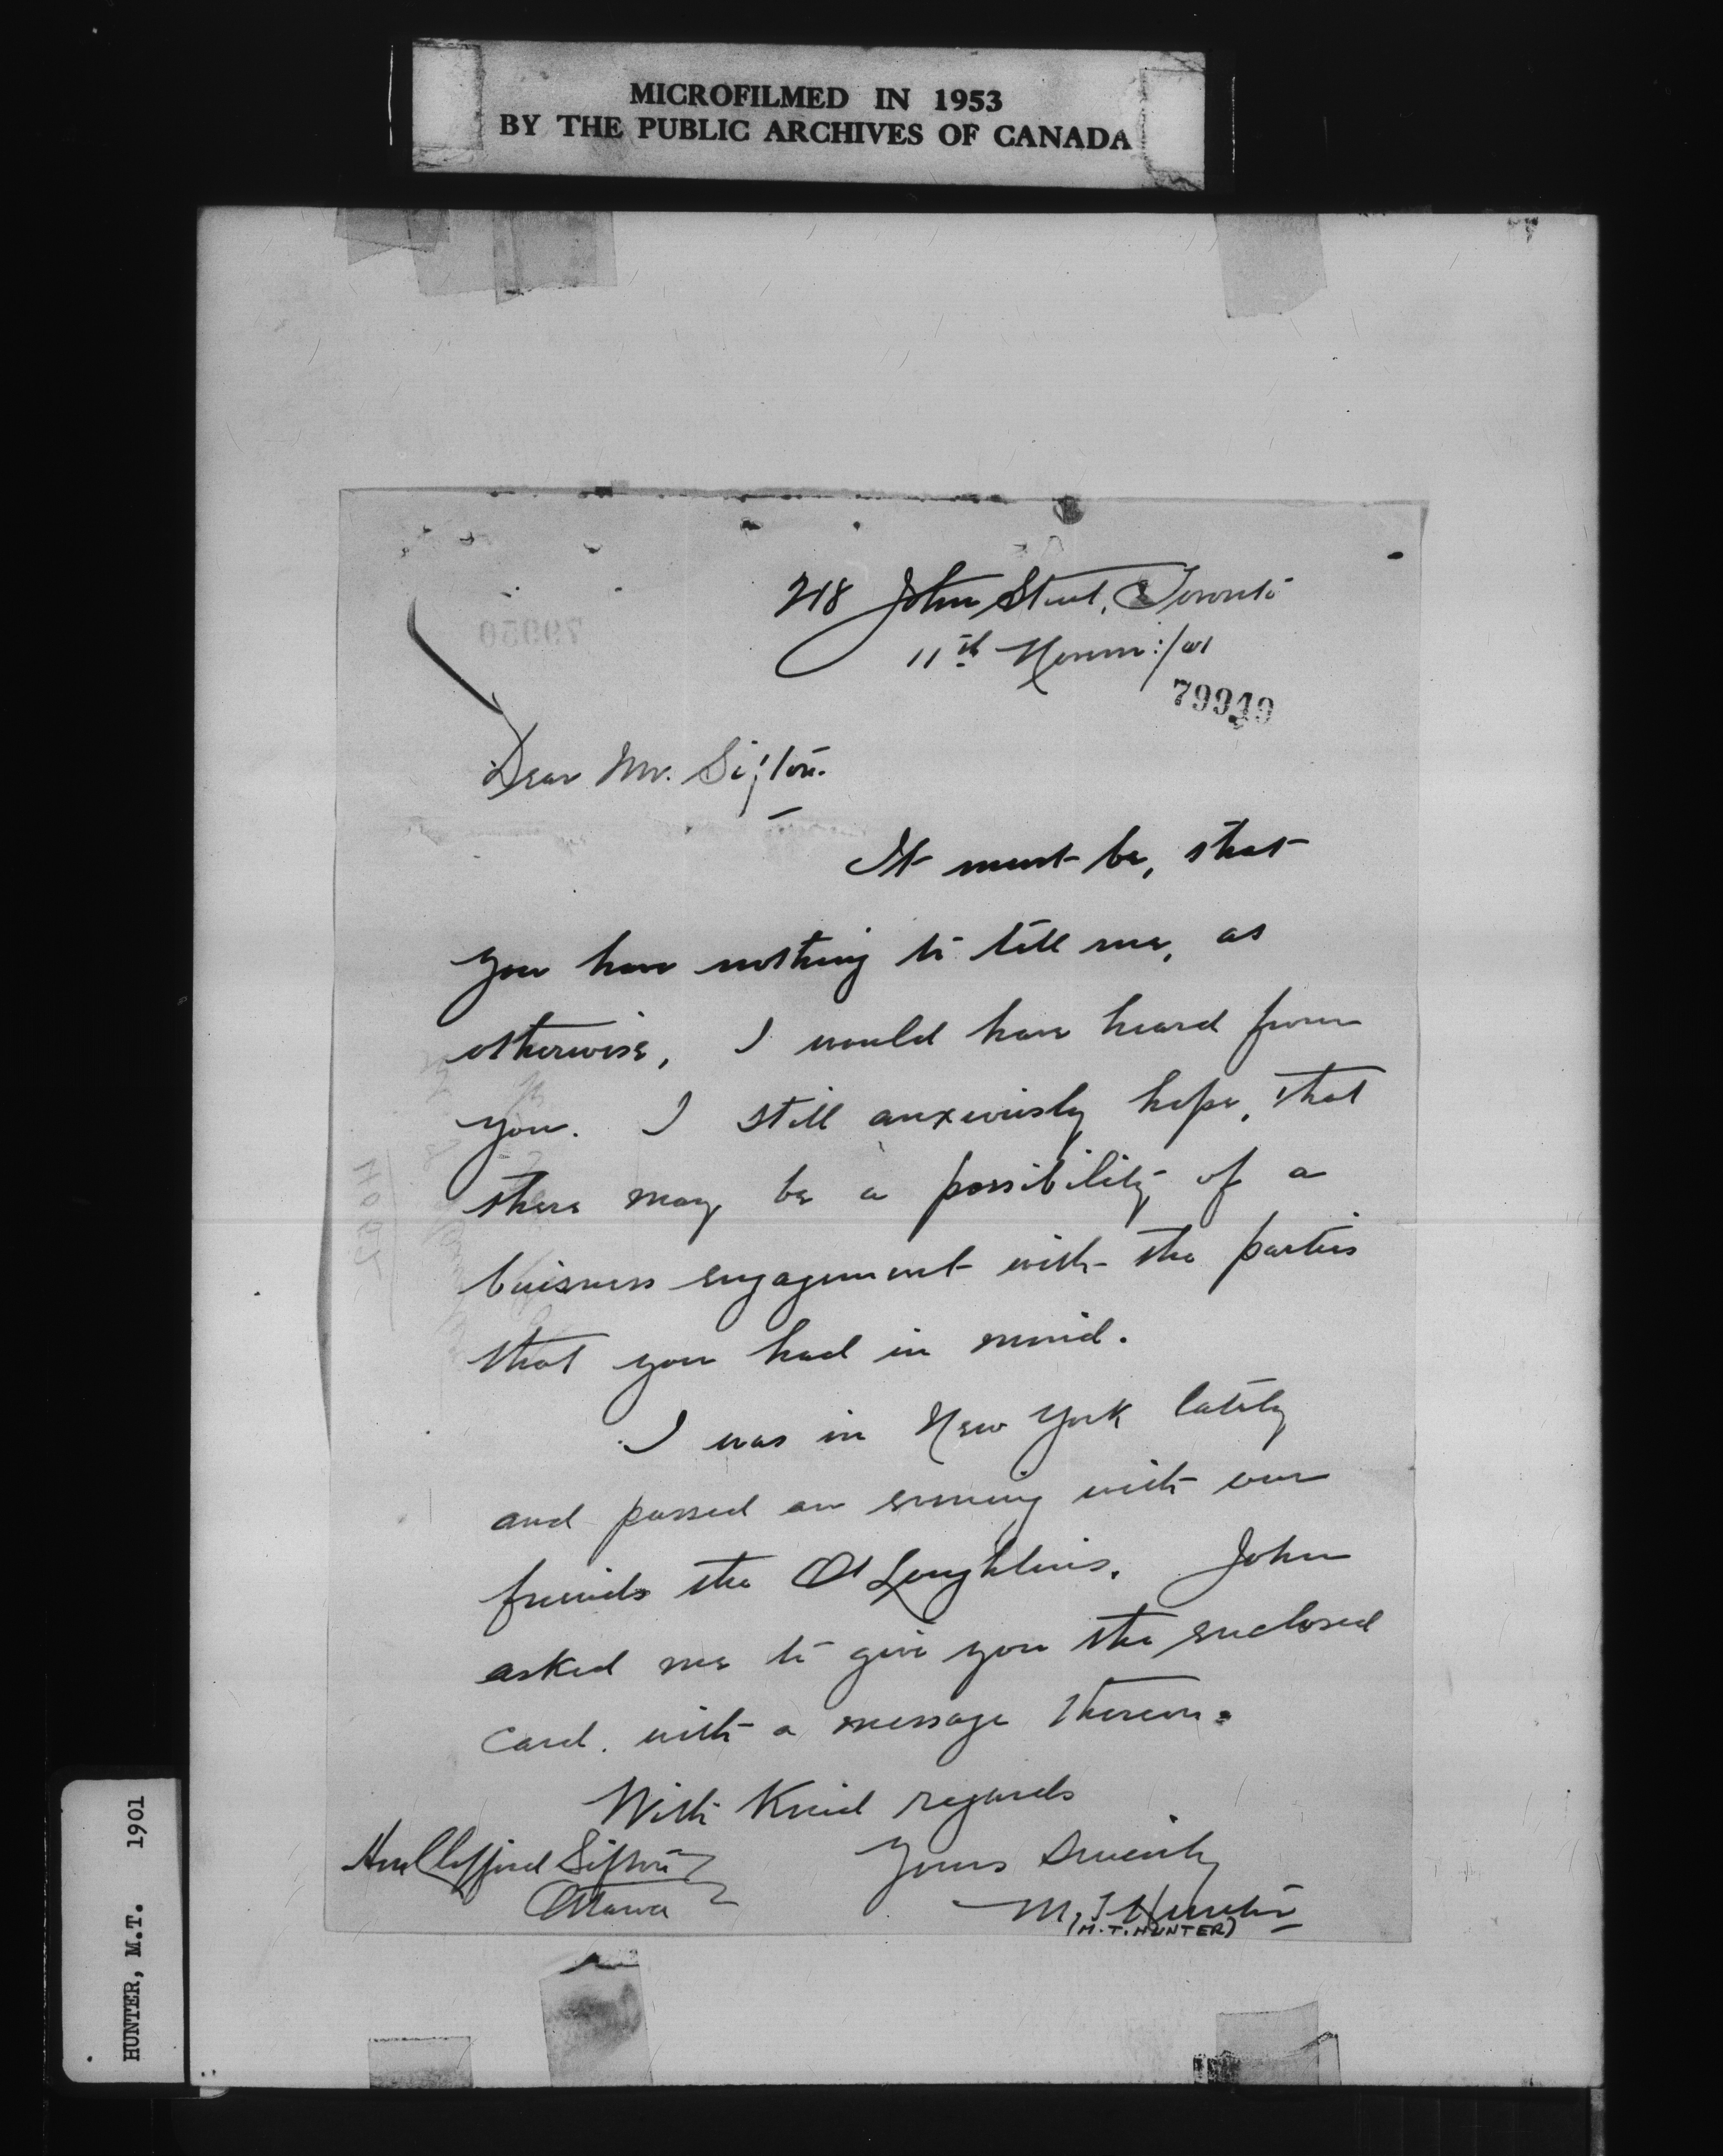 MICROFILMED IN 1953
BY THE PUBLIC ARCHIVES OF CANADA
218 John Street, Toronto
11th Novem:/01
79949
79950
Dear Mr. Sifton.
It must be, that
you have nothing to tell me, as
otherwise, I would have heard from
you. I still anxiously hope, that
there may be a possibility of a
buisness engagement with the parties
that you had in mind.
I was in New York lately
and passed an evening with our
friends the O'Loughlins. John
asked me to give you the enclosed
Card. with a message thereon.
With Kind regards
Yours Sincerely
M. T. Hunter
(M.T. HUNTER)
Hon Clifford Sifton
Ottawa
HUNTER, M.T. 1901